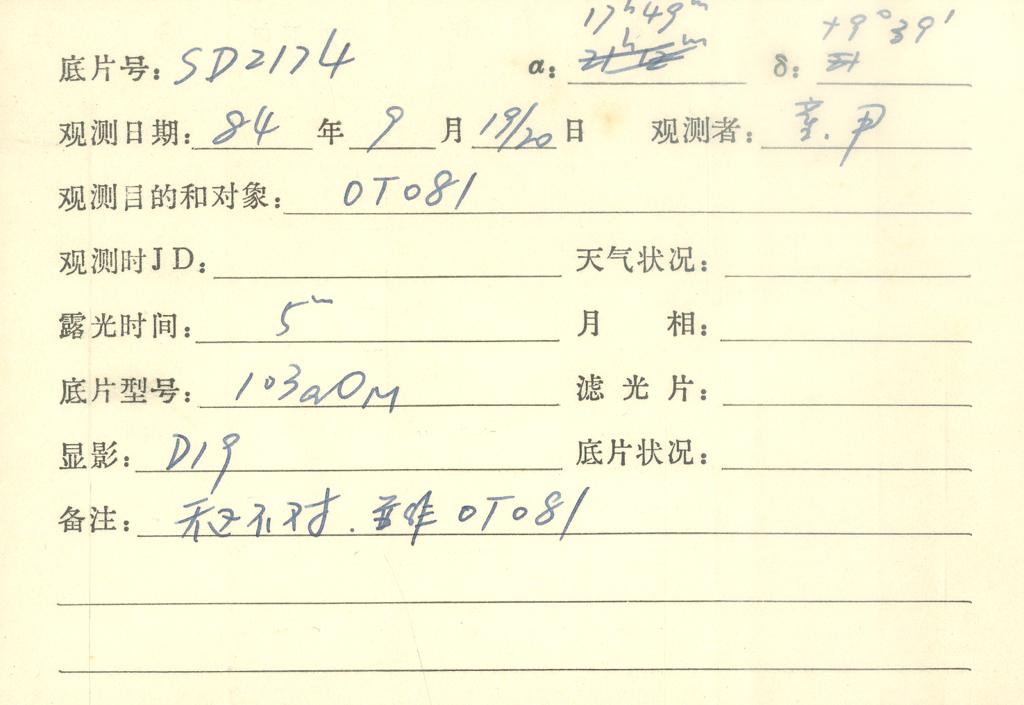 底片号: SD2174 α: 17ʰ49ᵐ δ: +9°39′
观测日期: 84 年 9 月 19/20 日 观测者:
观测目的和对象: OT081
观测时JD: 天气状况:
露光时间: 5ᵐ 月 相:
底片型号: 103aO 滤 光 片:
显影: D19 底片状况:
备注: 天区不对. 非 OT081